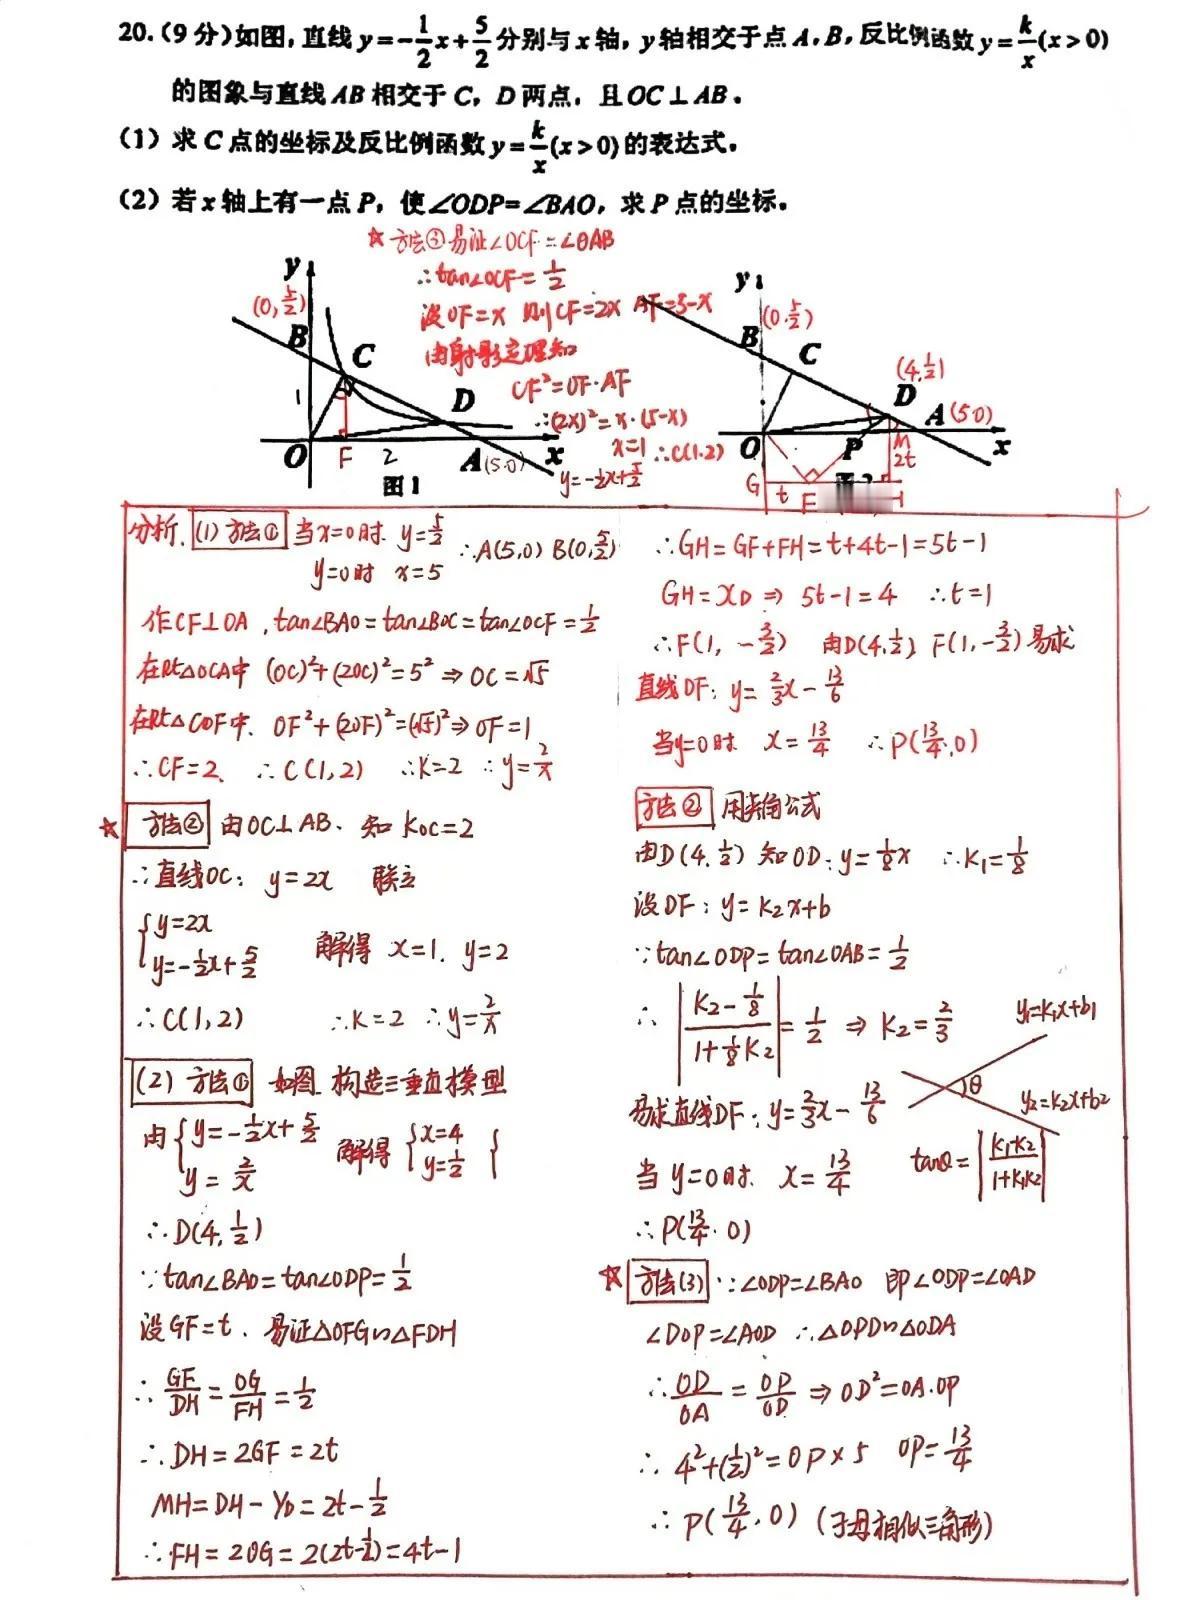 20.(9分)如图,直线y=-1/2x+5/2分别与x轴,y轴相交于点A,B,反比例函数y=k/x(x>0)
的图象与直线AB相交于C,D两点,且OC⊥AB.
(1)求C点的坐标及反比例函数y=k/x(x>0)的表达式.
(2)若x轴上有一点P,使∠ODP=∠BAO,求P点的坐标.
☆方法③易证∠OCF=∠OAB
∴tan∠OCF=1/2
设OF=x 则CF=2x AF=5-x
由射影定理知
CF²=OF·AF
∴(2x)²=x·(5-x)
x=1 ∴C(1.2)
y
(0,5/2)
B
C
1
D
O
F
2
A(5.0)
x
y=-1/2x+5/2
图1
y
(0.5/2)
B
C
(4,1/2)
D
A(5.0)
O
P
M
x
2t
G
t
F
H
分析.(1)方法① 当x=0时. y=5/2
y=0时 x=5
∴A(5,0) B(0,5/2)
作CF⊥OA,tan∠BAO=tan∠BOC=tan∠OCF=1/2
在Rt△OCA中 (OC)²+(2OC)²=5²⇒OC=√5
在Rt△COF中. OF²+(2OF)²=(√5)²⇒OF=1
∴CF=2. ∴C(1,2) ∴K=2 ∴y=2/x
☆方法② 由OC⊥AB、知KOC=2
∴直线OC: y=2x 联立
{y=2x
y=-1/2x+5/2 解得 x=1. y=2
∴C(1,2) ∴K=2 ∴y=2/x
(2)方法① 如图 构造三垂直模型
由{y=-1/2x+5/2
y=2/x 解得{x=4
y=1/2 {
∴D(4,1/2)
∵tan∠BAO=tan∠ODP=1/2
设GF=t. 易证△OFG∽△FDH
∴GF/DH=OG/FH=1/2
∴DH=2GF=2t
MH=DH-YD=2t-1/2
∴FH=2OG=2(2t-1/2)=4t-1
∴GH=GF+FH=t+4t-1=5t-1
GH=XD⇒5t-1=4 ∴t=1
∴F(1,-3/2) 由D(4,1/2) F(1,-3/2)易求
直线DF: y=2/3x-13/6
当y=0时 x=13/4 ∴P(13/4,0)
方法② 用夹角公式
由D(4.1/2)知OD:y=1/8x ∴K1=1/8
设DF: y=K2x+b
∵tan∠ODP=tan∠OAB=1/2
∴|(K2-1/8)/(1+1/8K2)|=1/2⇒K2=2/3
y1=k1x+b1
θ
y2=k2x+b2
易求直线DF:y=2/3x-13/6
tanθ=|(K1-K2)/(1+K1K2)|
当y=0时. x=13/4
∴P(13/4.0)
☆方法(3) ∵∠ODP=∠BAO 即∠ODP=∠OAD
∠DOP=∠AOD ∴△OPD∽△ODA
∴OD/OA=OP/OD⇒OD²=OA.OP
∴4²+(1/2)²=OP×5 OP=13/4
∴P(13/4,0)(子母相似三角形)